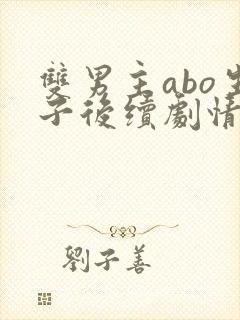 雙男主abo生
子後續劇情
劉子善